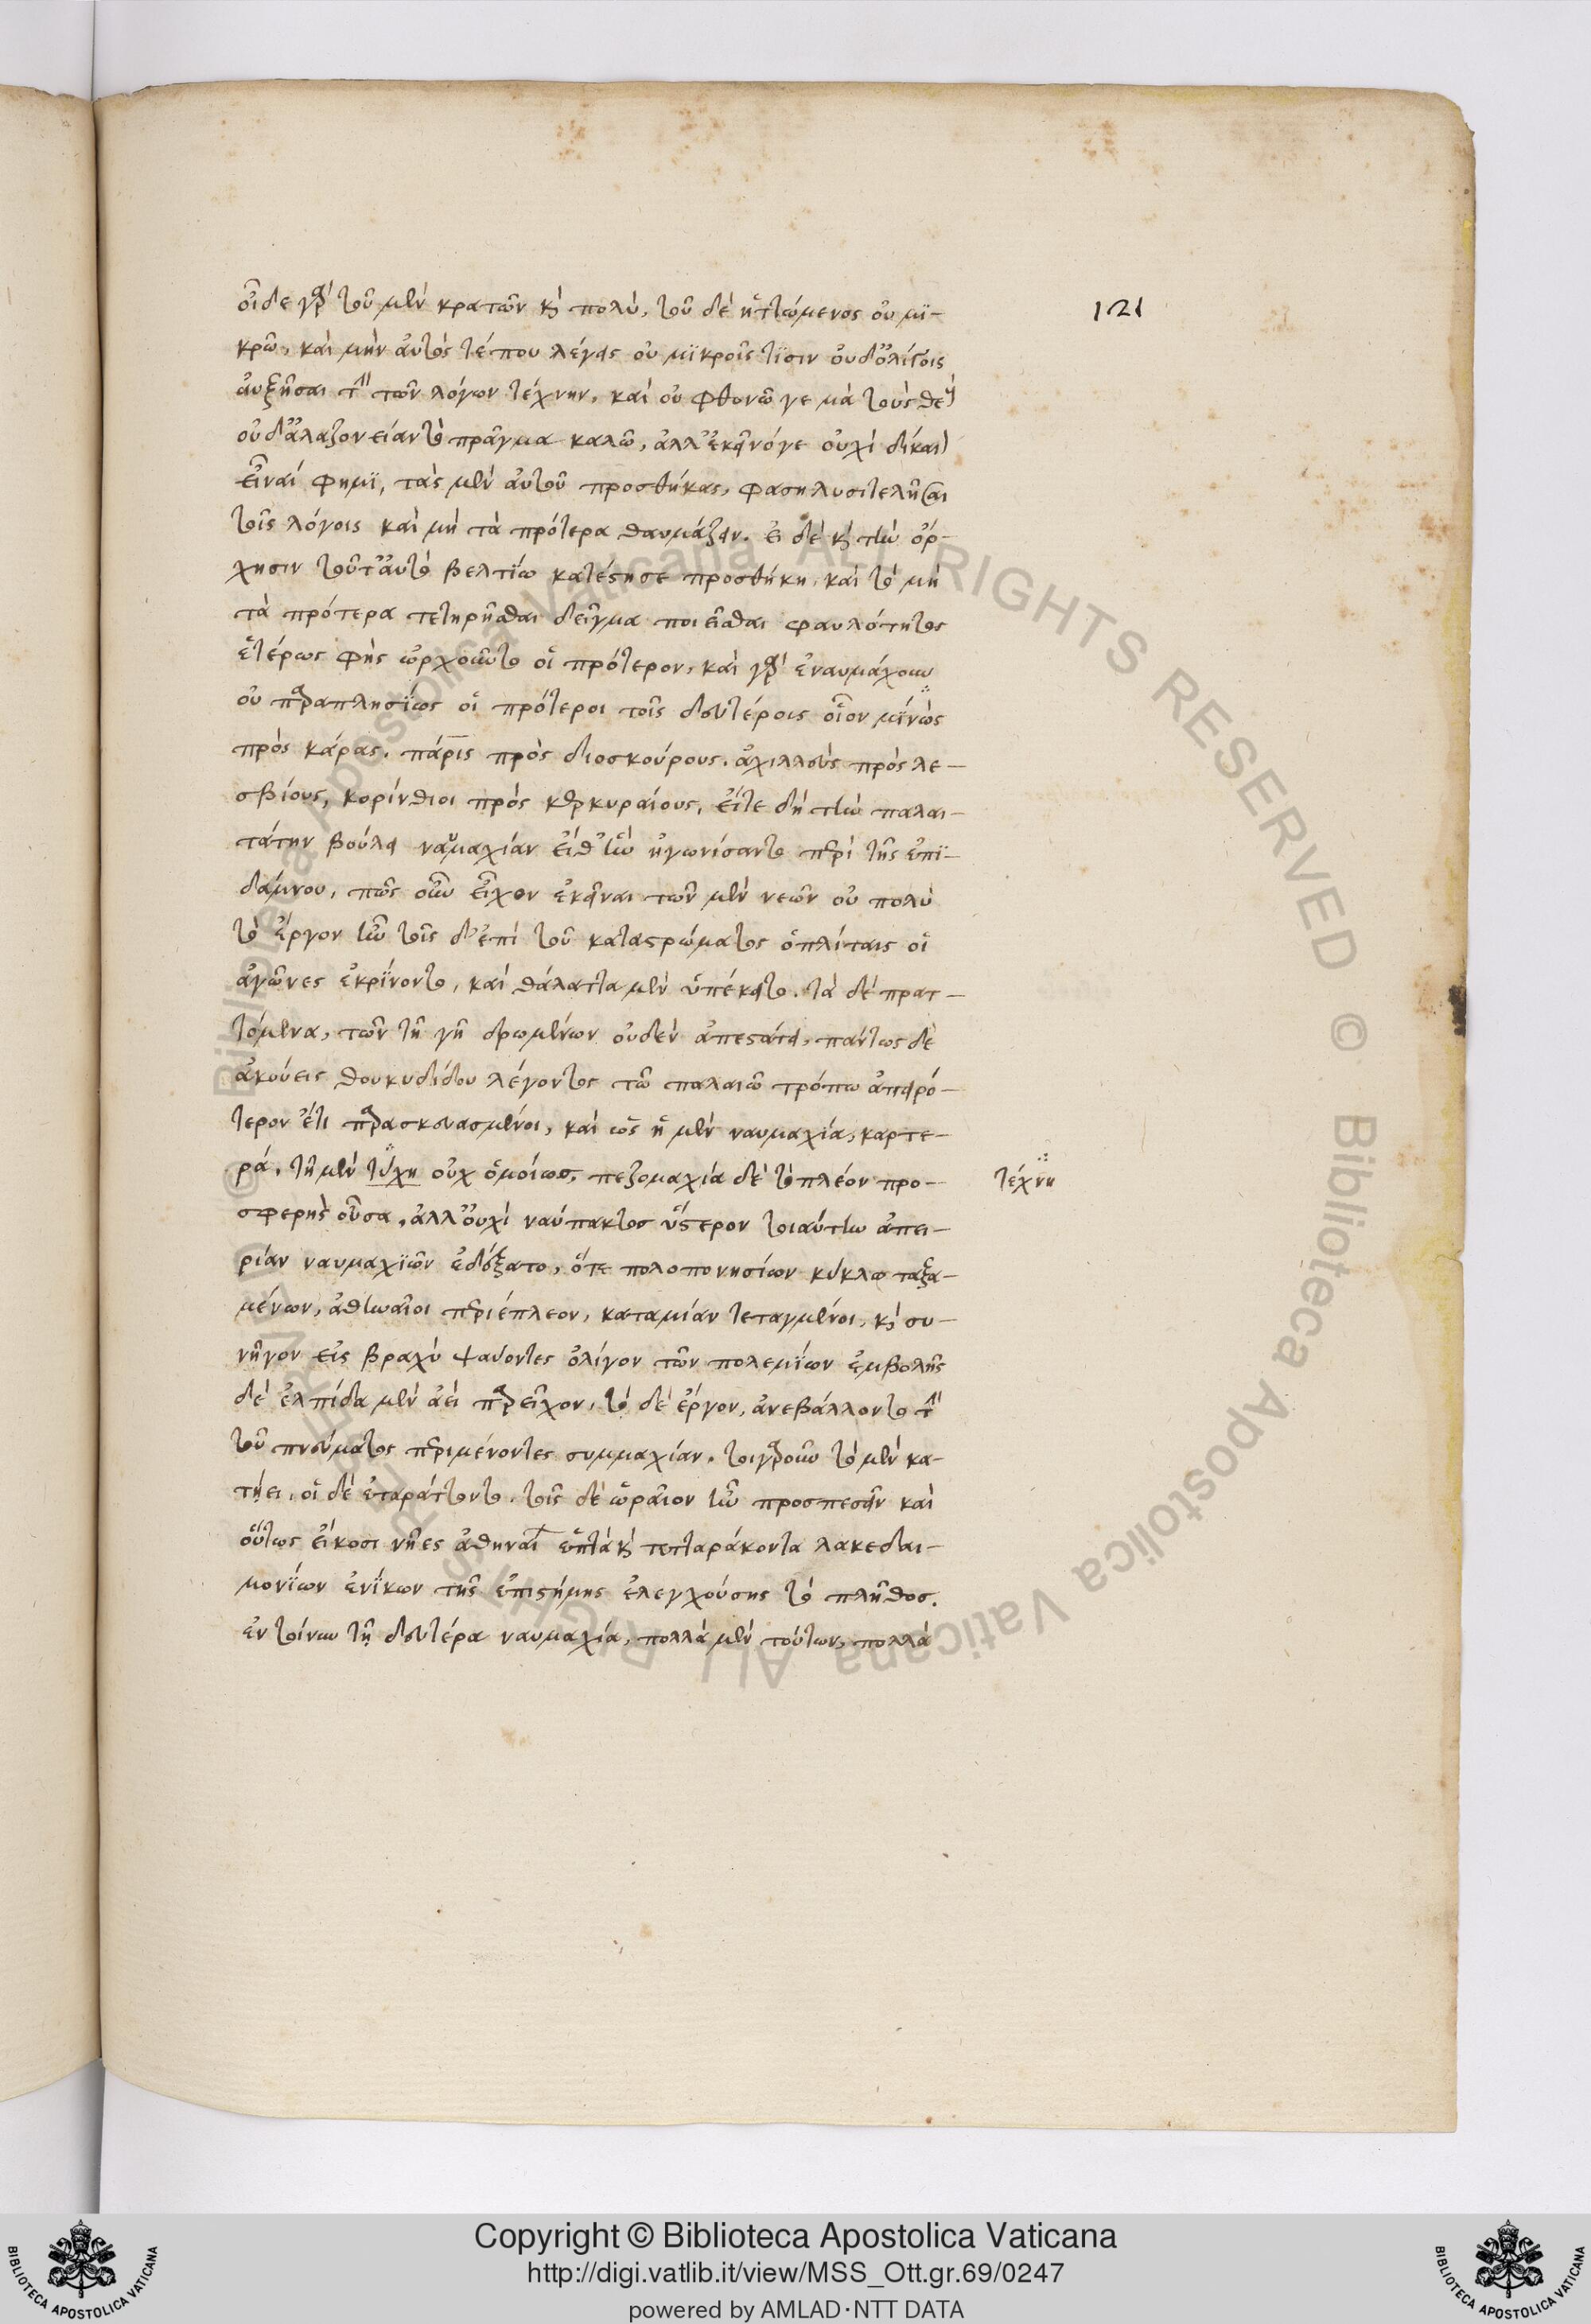 οἶδε γὰρ τοῦ μὲν κρατῶν κὶ πολύ, τοῦ δὲ ἡττώμενος οὐ μϊ-
121
κρῶ, καὶ μὴν αὐτός τέ που λέγεις οὐ μϊκροῖς τϊσιν οὐδ᾽ὀλίγοις
αὐξῆσαι τὴν τῶν λόγων τέχνην, καὶ οὐ φθονῶ γε μὰ τοὺς θεοὺς
οὐδ᾽ἀλαζονείαν τὸ πρᾶγμα καλῶ, ἀλλ᾽ἐκεῖνό γε οὐχὶ δίκαιον
εἶναί φημϊ, τὰς μὲν αὐτοῦ προσθήκας, φασὴ λυσιτελῆσαι
τοῖς λόγοις καὶ μὴ τὰ πρότερα θαυμάζειν. εἰ δὲ κὶ τὴν ὄρ-
χησιν τοῦτ᾽αὐτὸ βελτίω κατέστησε προσθήκη, καὶ τὸ μὴ
τὰ πρότερα τετηρῆσθαι δεῖγμα ποιεῖσθαι φαυλότητος
ἑτέρως φὴς ὠρχοῦντο οἱ πρότερον, καὶ γὰρ ἐναυμάχουν
οὐ παραπλησϊως οἱ πρότεροι τοῖς δευτέροις οἷον μϊνως
πρὸς κάρας. πάρις πρὸς διοσκούρους. ἀχιλλεὺς πρὸς λε-
σβίους, κορίνθιοι πρὸς κερκυραίους, εἴτε δὴ τὴν παλαι-
τάτην βούλει ναυμαχίαν εἴθ᾽ ἣν ἠγωνίσαντο περὶ τῆς ἐπϊ-
δάμνου, πῶς οὖν εἶχον ἐκεῖναι τῶν μὲν νεῶν οὐ πολὺ
τὸ ἔργον ἦν τοῖς δ᾽ἐπὶ τοῦ καταστρώματος ὁπλίταις οἱ
ἀγῶνες ἐκρίνοντο, καὶ θάλαττα μὲν ὑπέκειτο. τὰ δὲ πρατ-
τόμενα, τῶν τῆ γῆ δρωμένων οὐδὲν ἀπεστάτει, πάντως δὲ
ἀκούεις θουκυδίδου λέγοντος τῶ παλαιῶ τρόπω ἀπειρό-
τερον ἔτι παρασκευασμένοι, καὶ ὡς ἡ μὲν ναυμαχία, καρτε-
ρά, τῆ μὲν τύχη οὐχ ὁμοίως, πεζομαχία δὲ τὸ πλέον προ-
τέχνη
σφερὴς οὖσα, ἀλλ᾽οὐχὶ ναύπακτος ὕστερον τοιαύτην ἀπει-
ρίαν ναυμαχϊῶν ἐδέξατο, ὅτε πολοπονησίων κύκλω ταξα-
μένων, ἀθηναῖοι περιέπλεον, καταμίαν τεταγμένοι, κὶ συ-
νῆγον εἰς βραχὺ ψαύοντες ὀλίγον τῶν πολεμϊων ἐμβολῆς
δὲ ἐλπίδα μὲν ἀεὶ παρεῖχον, τὸ δὲ ἔργον, ἀνεβάλλοντο τὴν
τοῦ πνεύματος περιμένοντες συμμαχίαν. τοιγαροῦν τὸ μὲν κα-
τήει, οἱ δὲ ἐταράττοντο. τοῖς δὲ ὡραῖον ἦν προσπεσεῖν καὶ
οὕτως εἴκοσι νῆες ἀθηναῖ ἑπτὰ κὶ τετταράκοντα λακεδαι-
μονϊων ἐνίκων τῆς ἐπιστήμης ἐλεγχούσης τὸ πλῆθος.
ἐν τοίνυν τῆ δευτέρα ναυμαχία, πολλὰ μὲν τούτων, πολλὰ
Copyright © Biblioteca Apostolica Vaticana
http://digi.vatlib.it/view/MSS_Ott.gr.69/0247
powered by AMLAD·NTT DATA